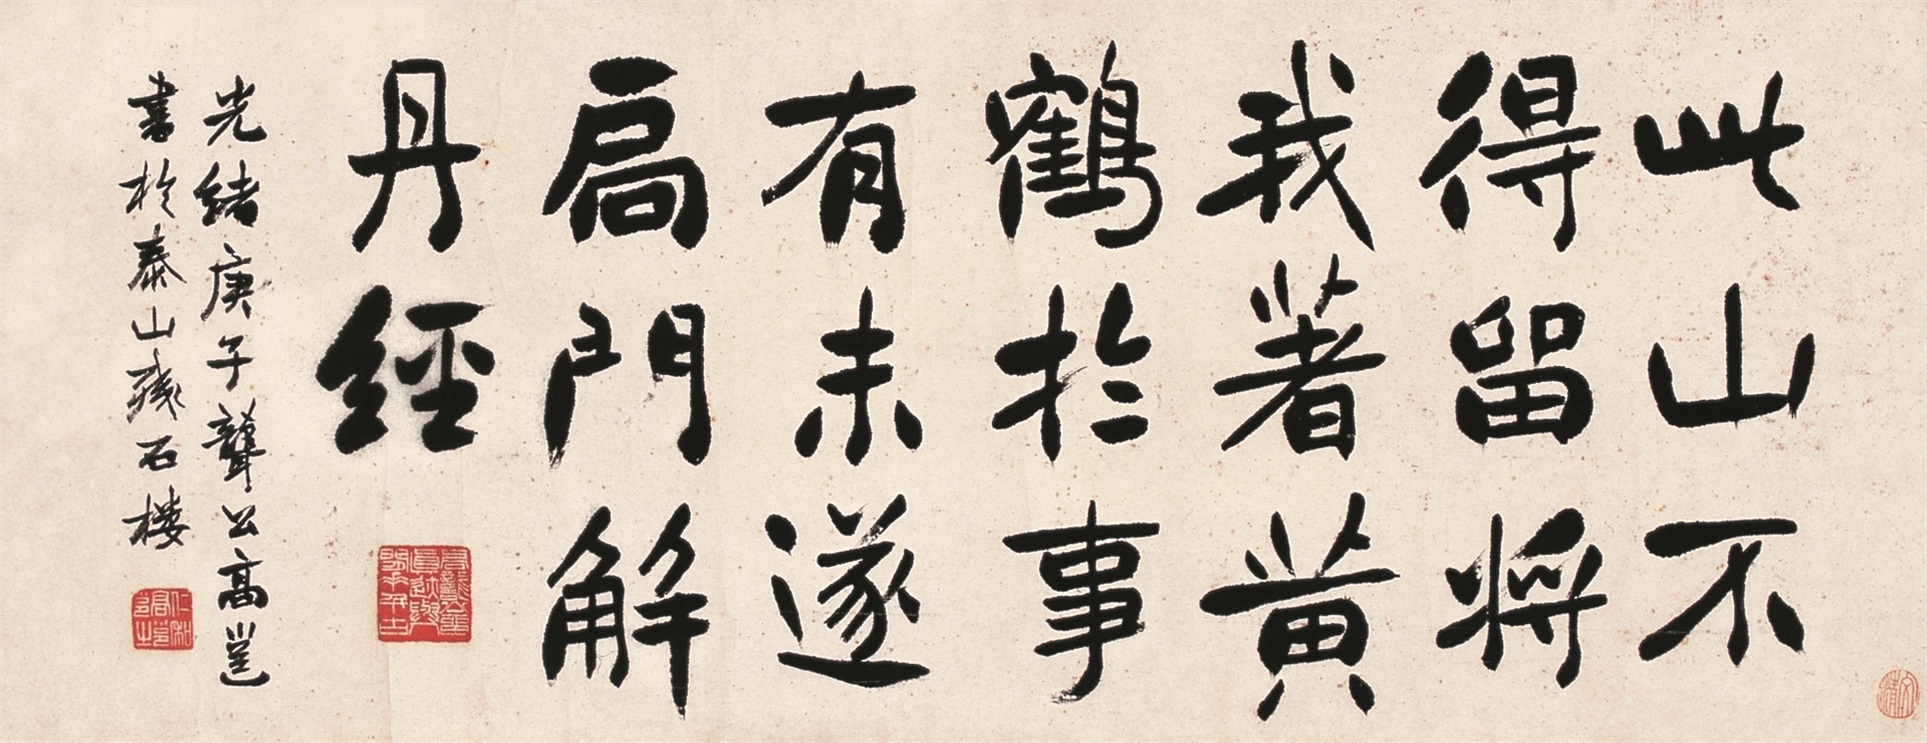 此山不
得留將
我著黃
鶴於事
有未遂
扃門解
丹經
光緒庚子聾公高邕
書於泰山殘石樓
仁和
高邕之